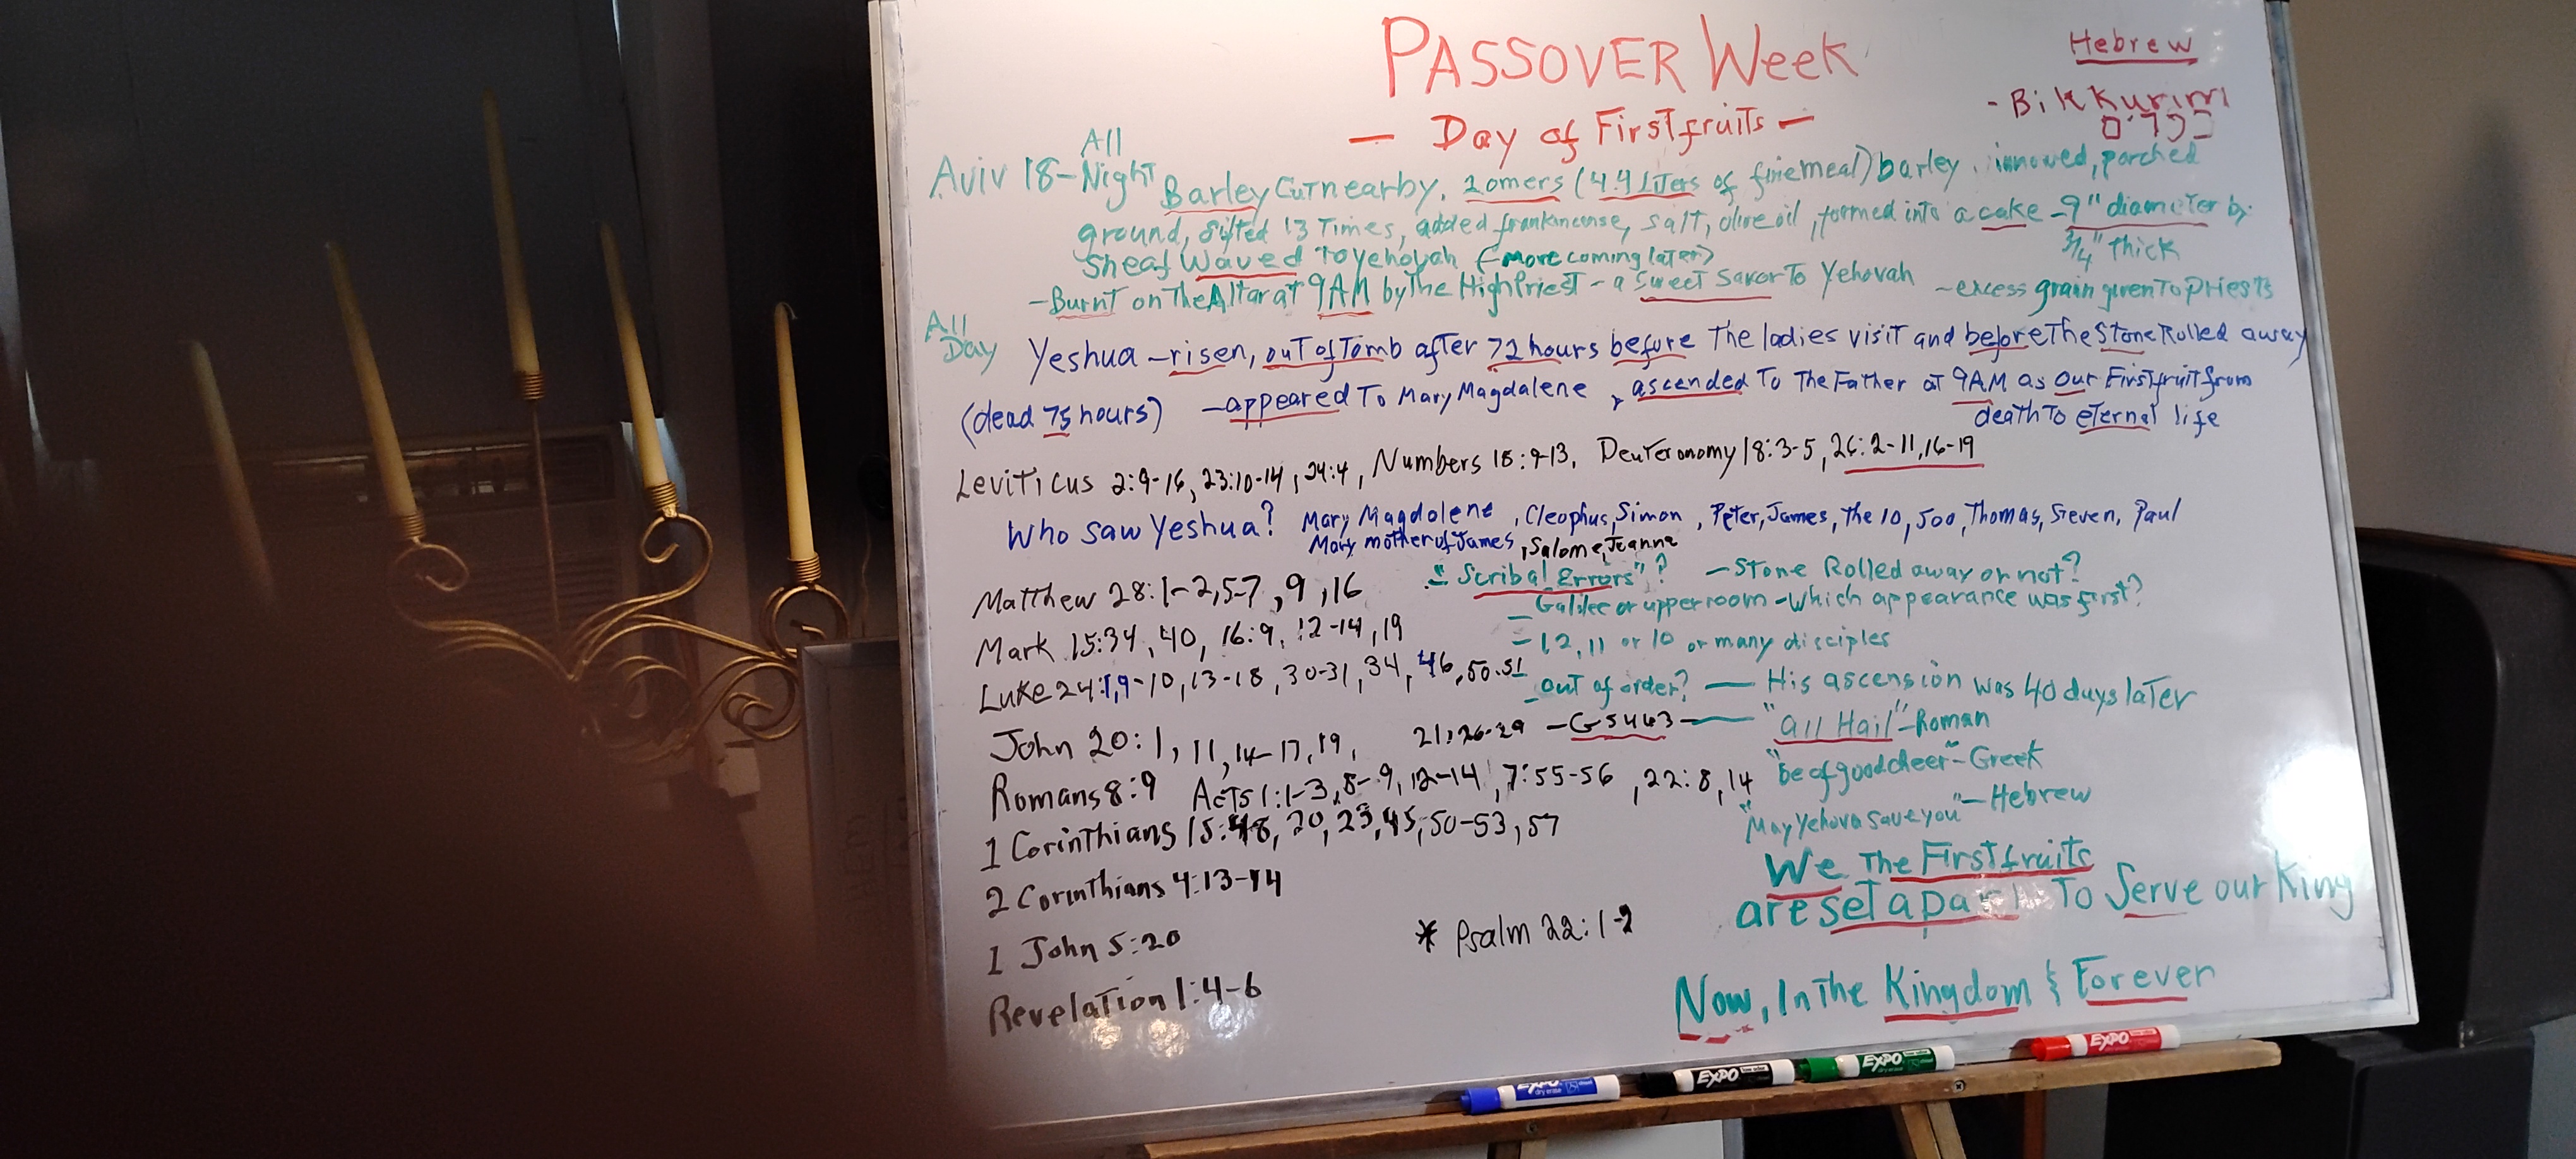 PASSOVER Week
Hebrew
- Bikkurim
— Day of Firstfruits —
Aviv 18 - All Night Barley Cut nearby. 2 omers (4.4 Liters of fine meal) barley, innowed, parched
ground, sifted 13 Times, added frankincense, salt, olive oil, formed into a cake - 9" diameter by
3/4" Thick
Sheaf Waved To Yehovah (- More coming later)
- Burnt on The Altar at 9AM by The High Priest - a Sweet Savor To Yehovah - excess grain given To Priests
All Day
Yeshua - risen, out of Tomb after 72 hours before The ladies visit and before The Stone Rolled away
(dead 75 hours) - appeared To Mary Magdalene, ascended To The Father at 9AM as our Firstfruit from
death To eternal life
Leviticus 2:9-16, 23:10-14, 24:4, Numbers 18:9-13, Deuteronomy 18:3-5, 26:2-11, 16-19
Who saw Yeshua? Mary Magdolene, Cleophus, Simon, Peter, James, The 10, 500, Thomas, Steven, Paul
Mary mother of James, Salome, Joanna
Matthew 28:1-2, 5-7, 9, 16
"Scribal Errors"? - Stone Rolled away or not?
- Galilee or upper room - Which appearance was first?
Mark 15:34, 40, 16:9, 12-14, 19
- 12, 11 or 10 or many disciples
Luke 24:1, 9-10, 13-18, 30-31, 34, 46, 50-51
- out of order? — His ascension was 40 days later
John 20:1, 11, 14-17, 19, 21:26-29 - G5463 — "all Hail" - Roman
"be of good cheer" - Greek
Romans 8:9 Acts 1:1-3, 8-9, 12-14, 7:55-56, 22:8, 14
"May Yehova save you" - Hebrew
1 Corinthians 15:48, 20, 23, 45, 50-53, 57
2 Corinthians 4:13-14
We The Firstfruits
are set apart To Serve our King
1 John 5:20
* Psalm 22:1-2
Revelation 1:4-6
Now, In The Kingdom & Forever
EXPO
EXPO
EXPO
EXPO